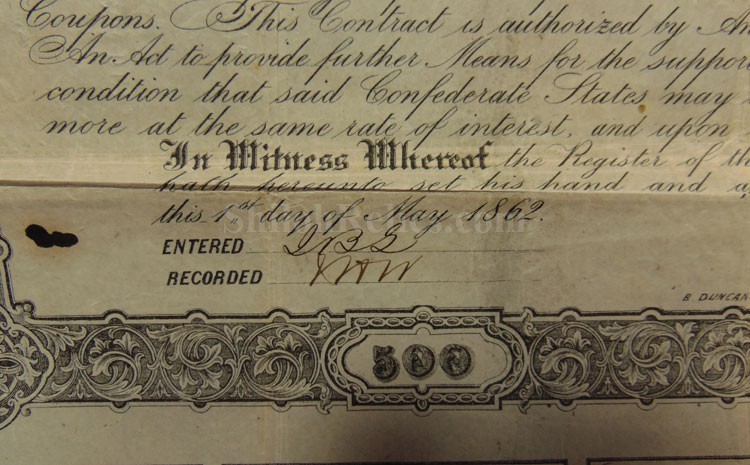 Coupons. This Contract is authorized by An
An Act to provide further Means for the support
condition that said Confederate States may
more at the same rate of interest, and upon
In Witness Whereof the Register of th
hath hereunto set his hand and a
this 1st day of May 1862.
ENTERED
RECORDED
B. DUNCAN
500